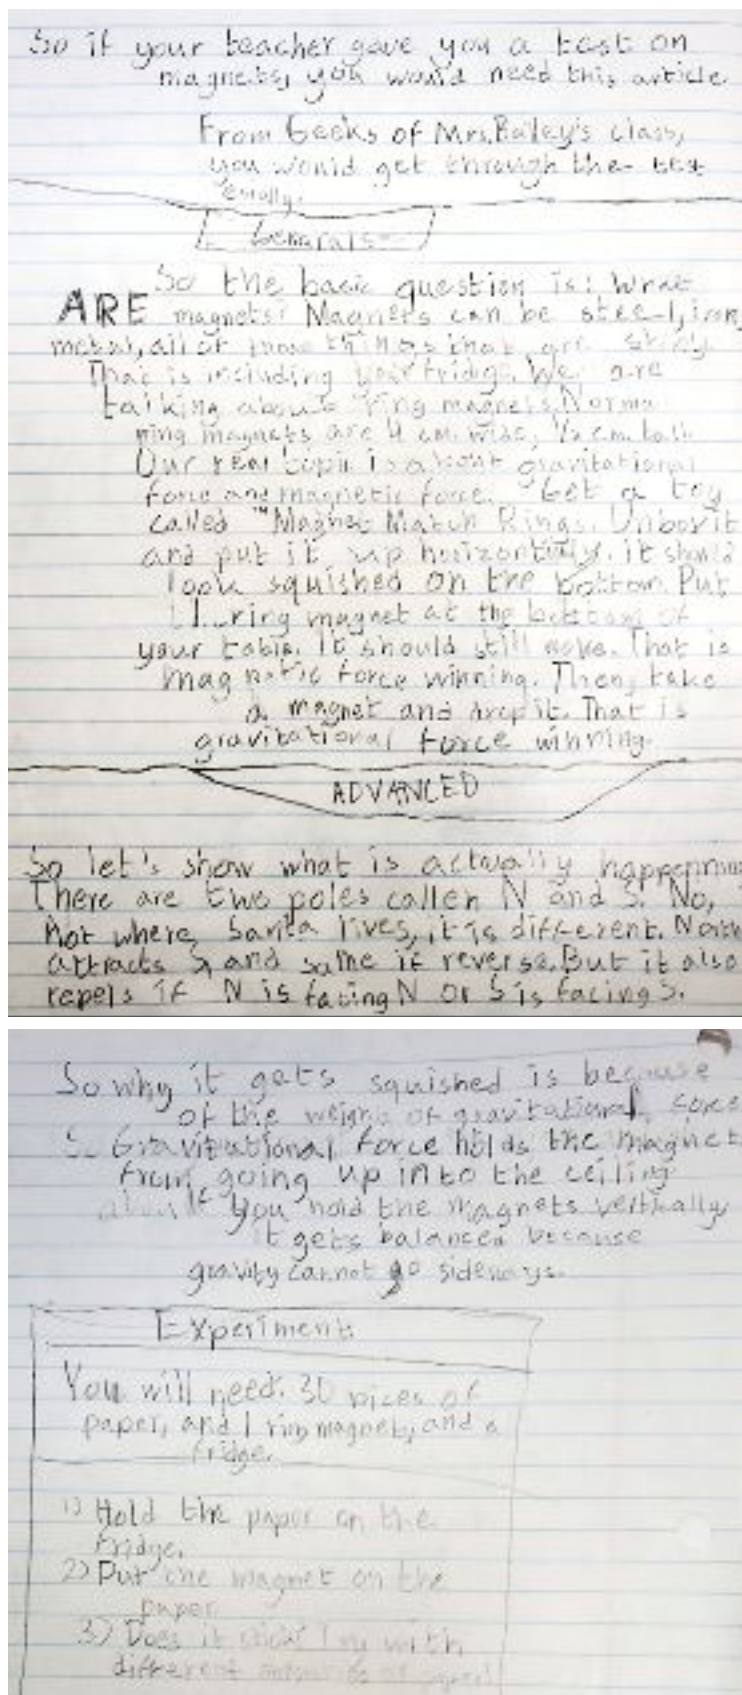 So if your teacher gave you a test on
magnets, you would need this article
From Geeks of Mrs. Bailey's class,
you would get through the test
easily.
Generals
So the basic question is: What
ARE magnets? Magnets can be steel, iron,
metal, all of those things that are sticky.
That is including your fridge. We are
talking about ring magnets. Norma
ring magnets are 4 cm. wide, ½ cm. tall.
Our real topic is about gravitational
force and magnetic force. Get a toy
called ™Magnet Match Rings. Unbox it
and put it up horizontully. it should
look squished on the bottom. Put
ring magnet at the bottom of
your table. It should still move. That is
magnetic force winning. Then, take
a magnet and drop it. That is
gravitational force winning.
ADVANCED
So let's show what is actually happenning
There are two poles callen N and S. No,
Not where Santa lives, it is different. North
attracts S, and same if reverse. But it also
repels if N is facing N or S is facing S.
So why it gets squished is because
of the weight of gravitational force
So Gravitational force holds the magnet
from going up into the ceiling
If you hold the magnets vertically
it gets balanced because
gravity cannot go sideways.
Experiment
You will need: 30 pices of
paper, and 1 ring magnet, and a
fridge.
1) Hold the paper on the
fridge.
2) Put the magnet on the
paper
3) Does it stick? Try with
different amounts of papers!